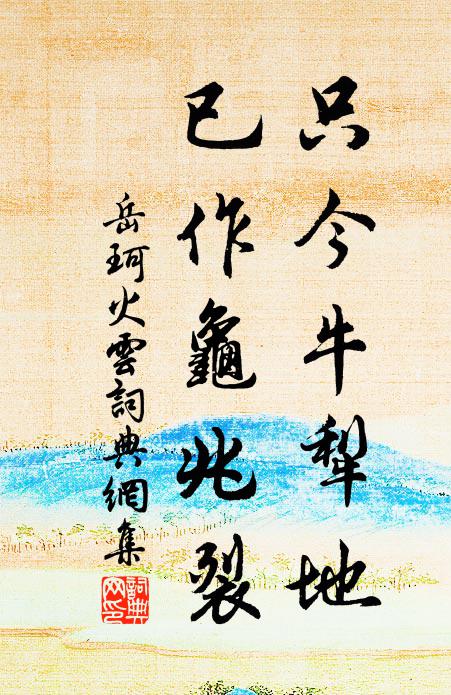 只今牛犁地
已作龜兆裂
岳珂火雲詞典網集
詞典網印